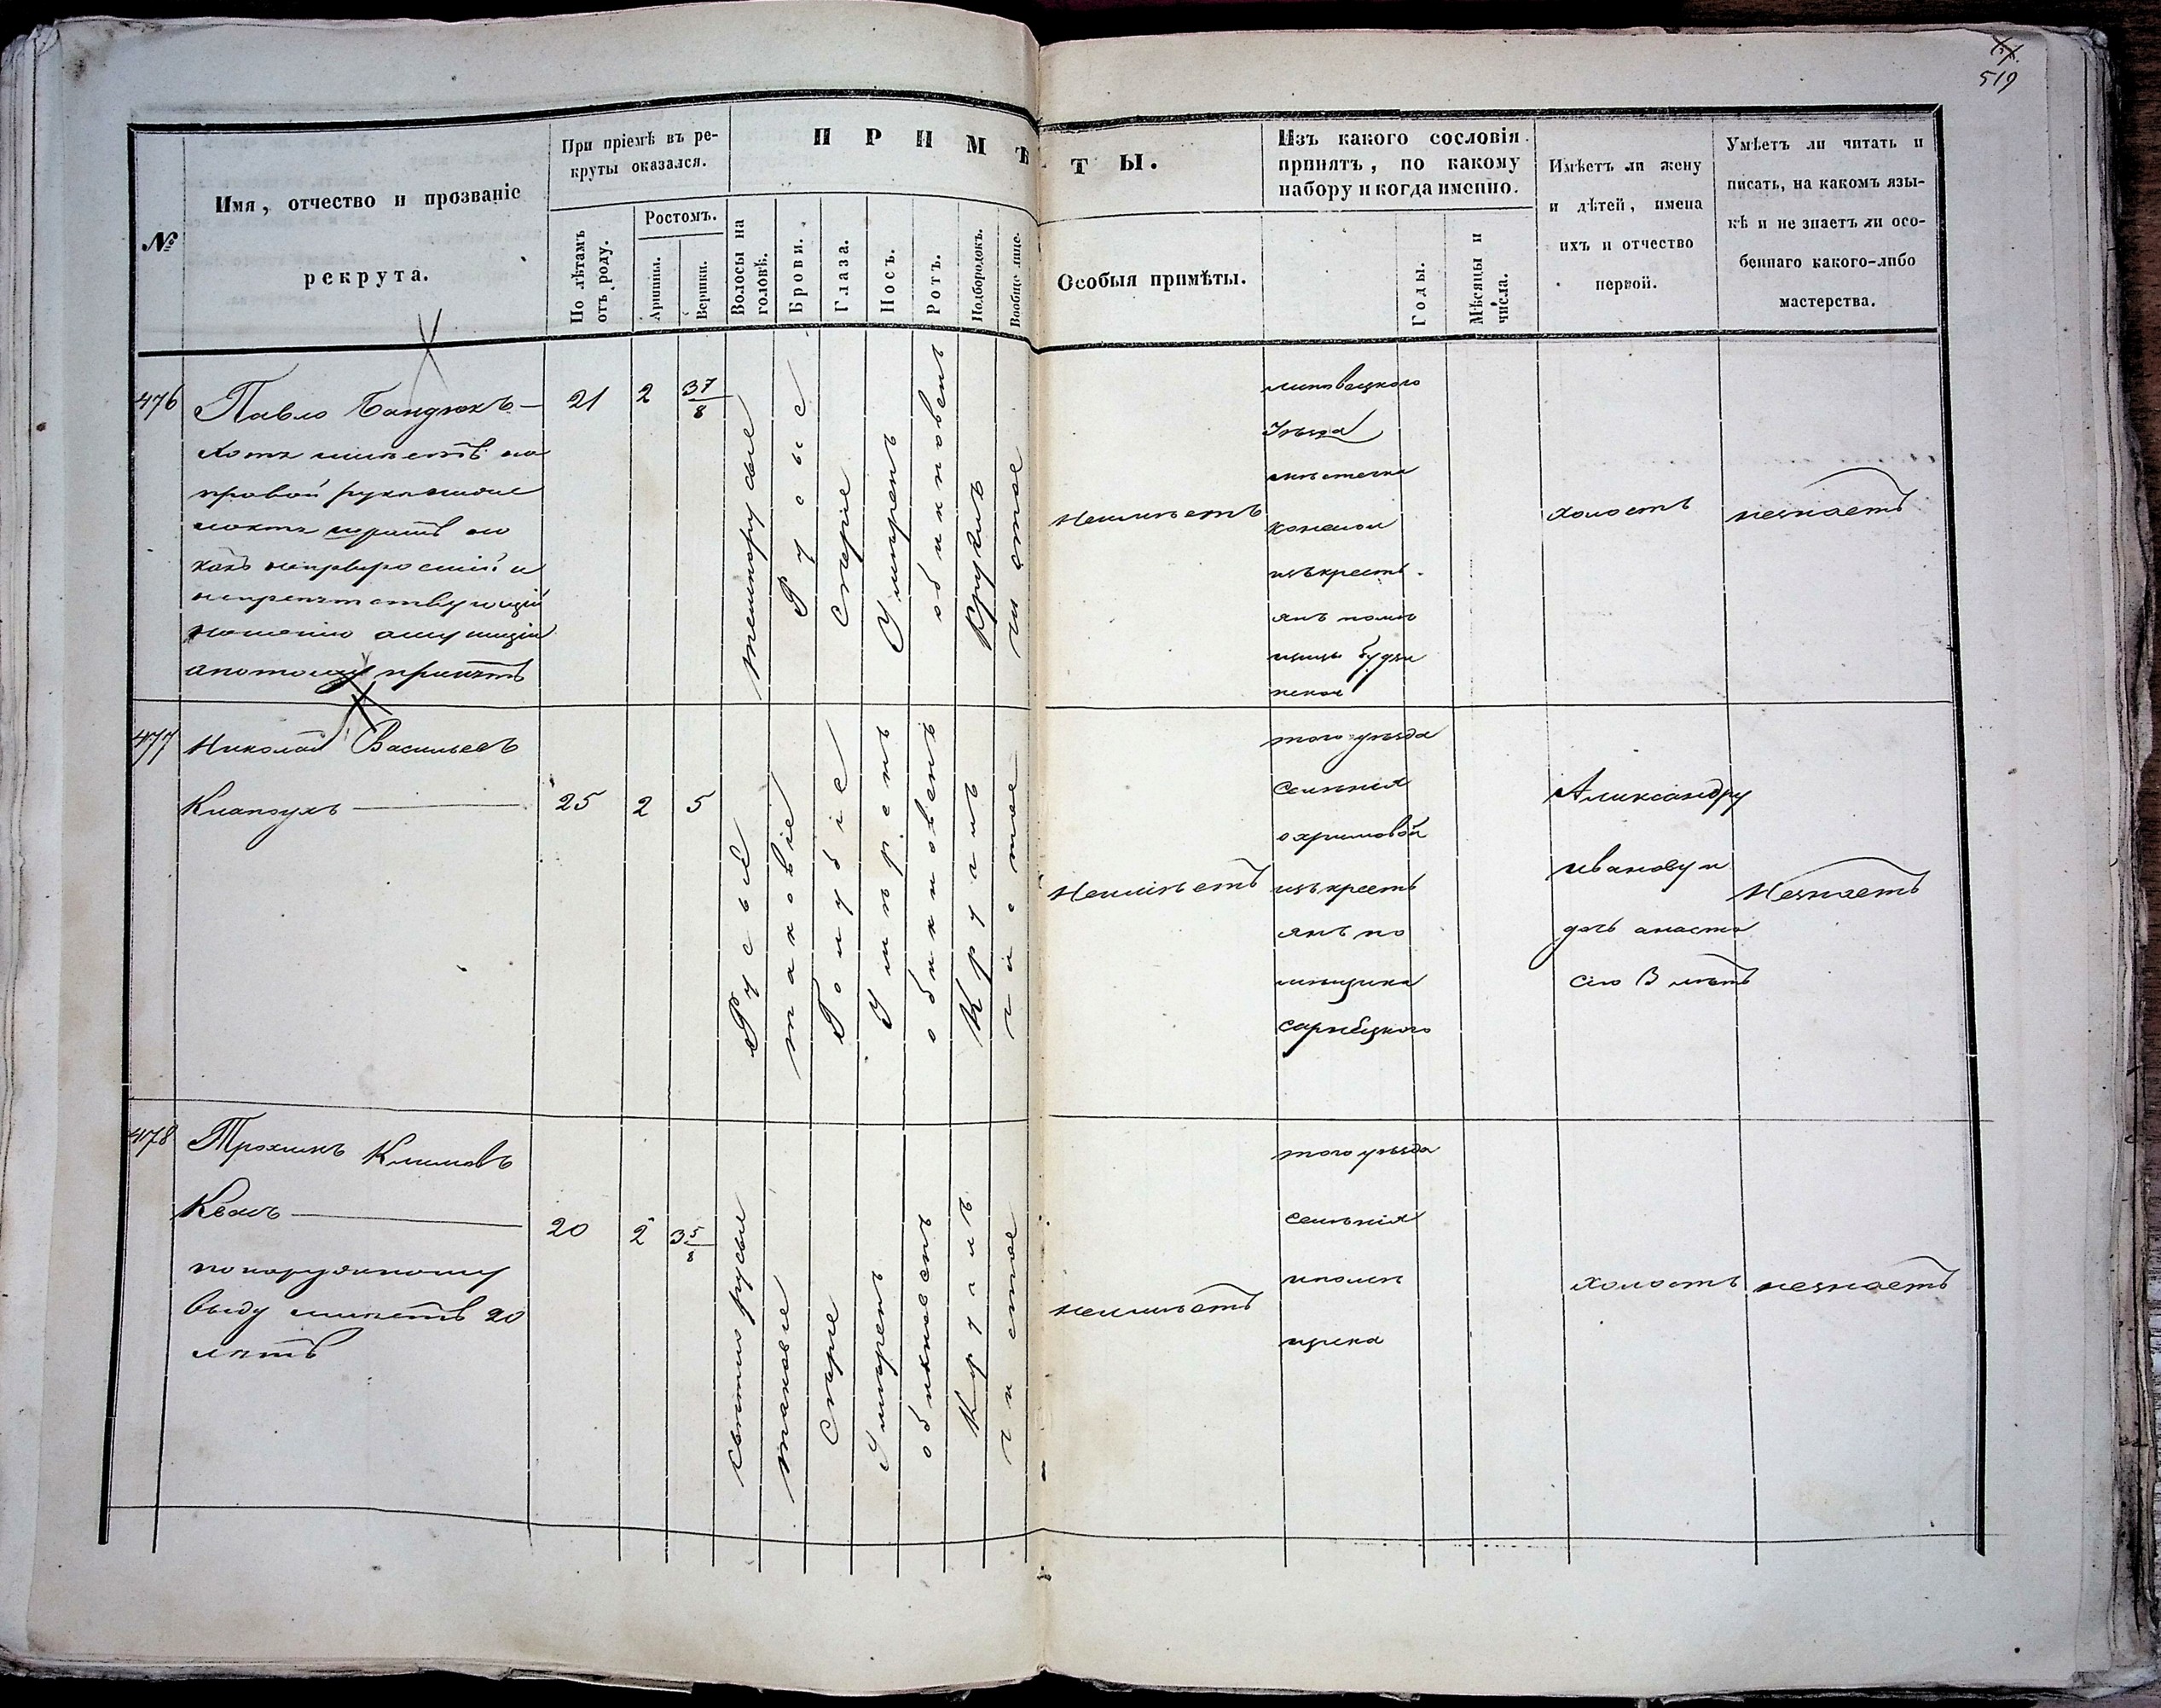 519
№
Имя, отчество и прозваніе
рекрута.
При пріемѣ въ ре-
круты оказался.
По лѣтамъ
отъ роду.
Ростомъ.
Аршины.
Вершки.
ПРИМѢТЫ.
Волосы на
головѣ.
Брови.
Глаза.
Носъ.
Ротъ.
Подбородокъ.
Вообще лице.
Особыя примѣты.
Изъ какого сословія
принятъ, по какому
набору и когда именно.
Годы.
Мѣсяцы и
числа.
Имѣетъ ли жену
и дѣтей, имена
ихъ и отчество
первой.
Умѣетъ ли читать и
писать, на какомъ язы-
кѣ и не знаетъ ли осо-
беннаго какого-либо
мастерства.
476
Павло Бондюкъ
хотя имѣетъ на
правой руки
но
какъ и
непрепятствующій
ношенію амуниціи
апотому принятъ
21
2
3 7/8
темнорусые
Русые
Сѣрые
Умѣренъ
обикновенъ
Круглъ
чистое
Неимѣетъ
липовецкого
Уѣзда
мѣстечка
изъ крестъ
янъ помѣ
холостъ
незнаетъ
477
Николай Васильевъ
25
2
5
Русые
таковіе
Голубіе
Умѣренъ
обикновенъ
Круглъ
чистое
Неимѣетъ
того уѣзда
Селенія
охримовой
изъ крестъ
янъ по
мѣщика
Александру
иванову и
дочь анаста
сію 3 лѣтъ
Незнаетъ
478
Трохимъ Климовъ
Квасъ
по наружному
виду имѣетъ 20
лѣтъ
20
2
3 5/8
свѣтло русые
таковые
Сѣрые
Умѣренъ
обикновенъ
Круглъ
чистое
неимѣетъ
того уѣзда
селенія
щика
холостъ
незнаетъ